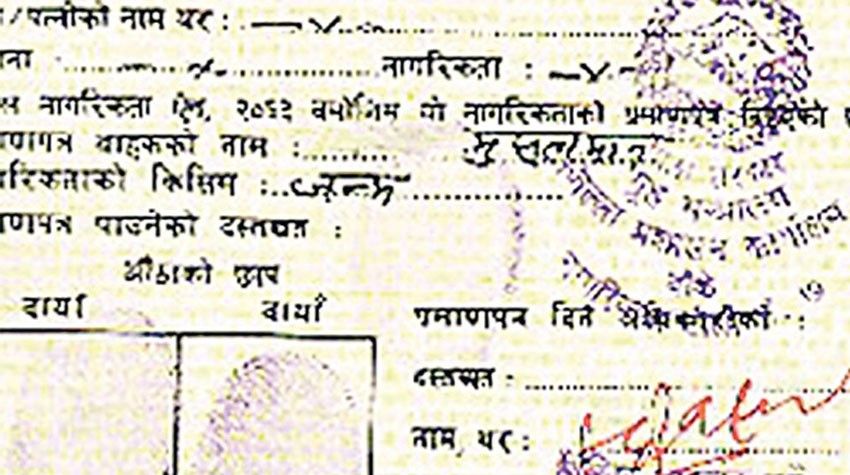 /पत्नीको नाम थर :
नागरिकता :
नागरिकता ऐन, २०६३ बमोजिम यो नागरिकताको प्रमाणपत्र दिइएको
णपत्र वाहकको नाम : मुसलमान
रिकताको किसिम : जन्म
णपत्र पाउनेको दस्तखत :
औंठाको छाप
दायाँ बायाँ
प्रमाणपत्र दिने अधिकारीको :
दस्तखत :
नाम, थर :
जिल्ला प्रशासन कार्यालय